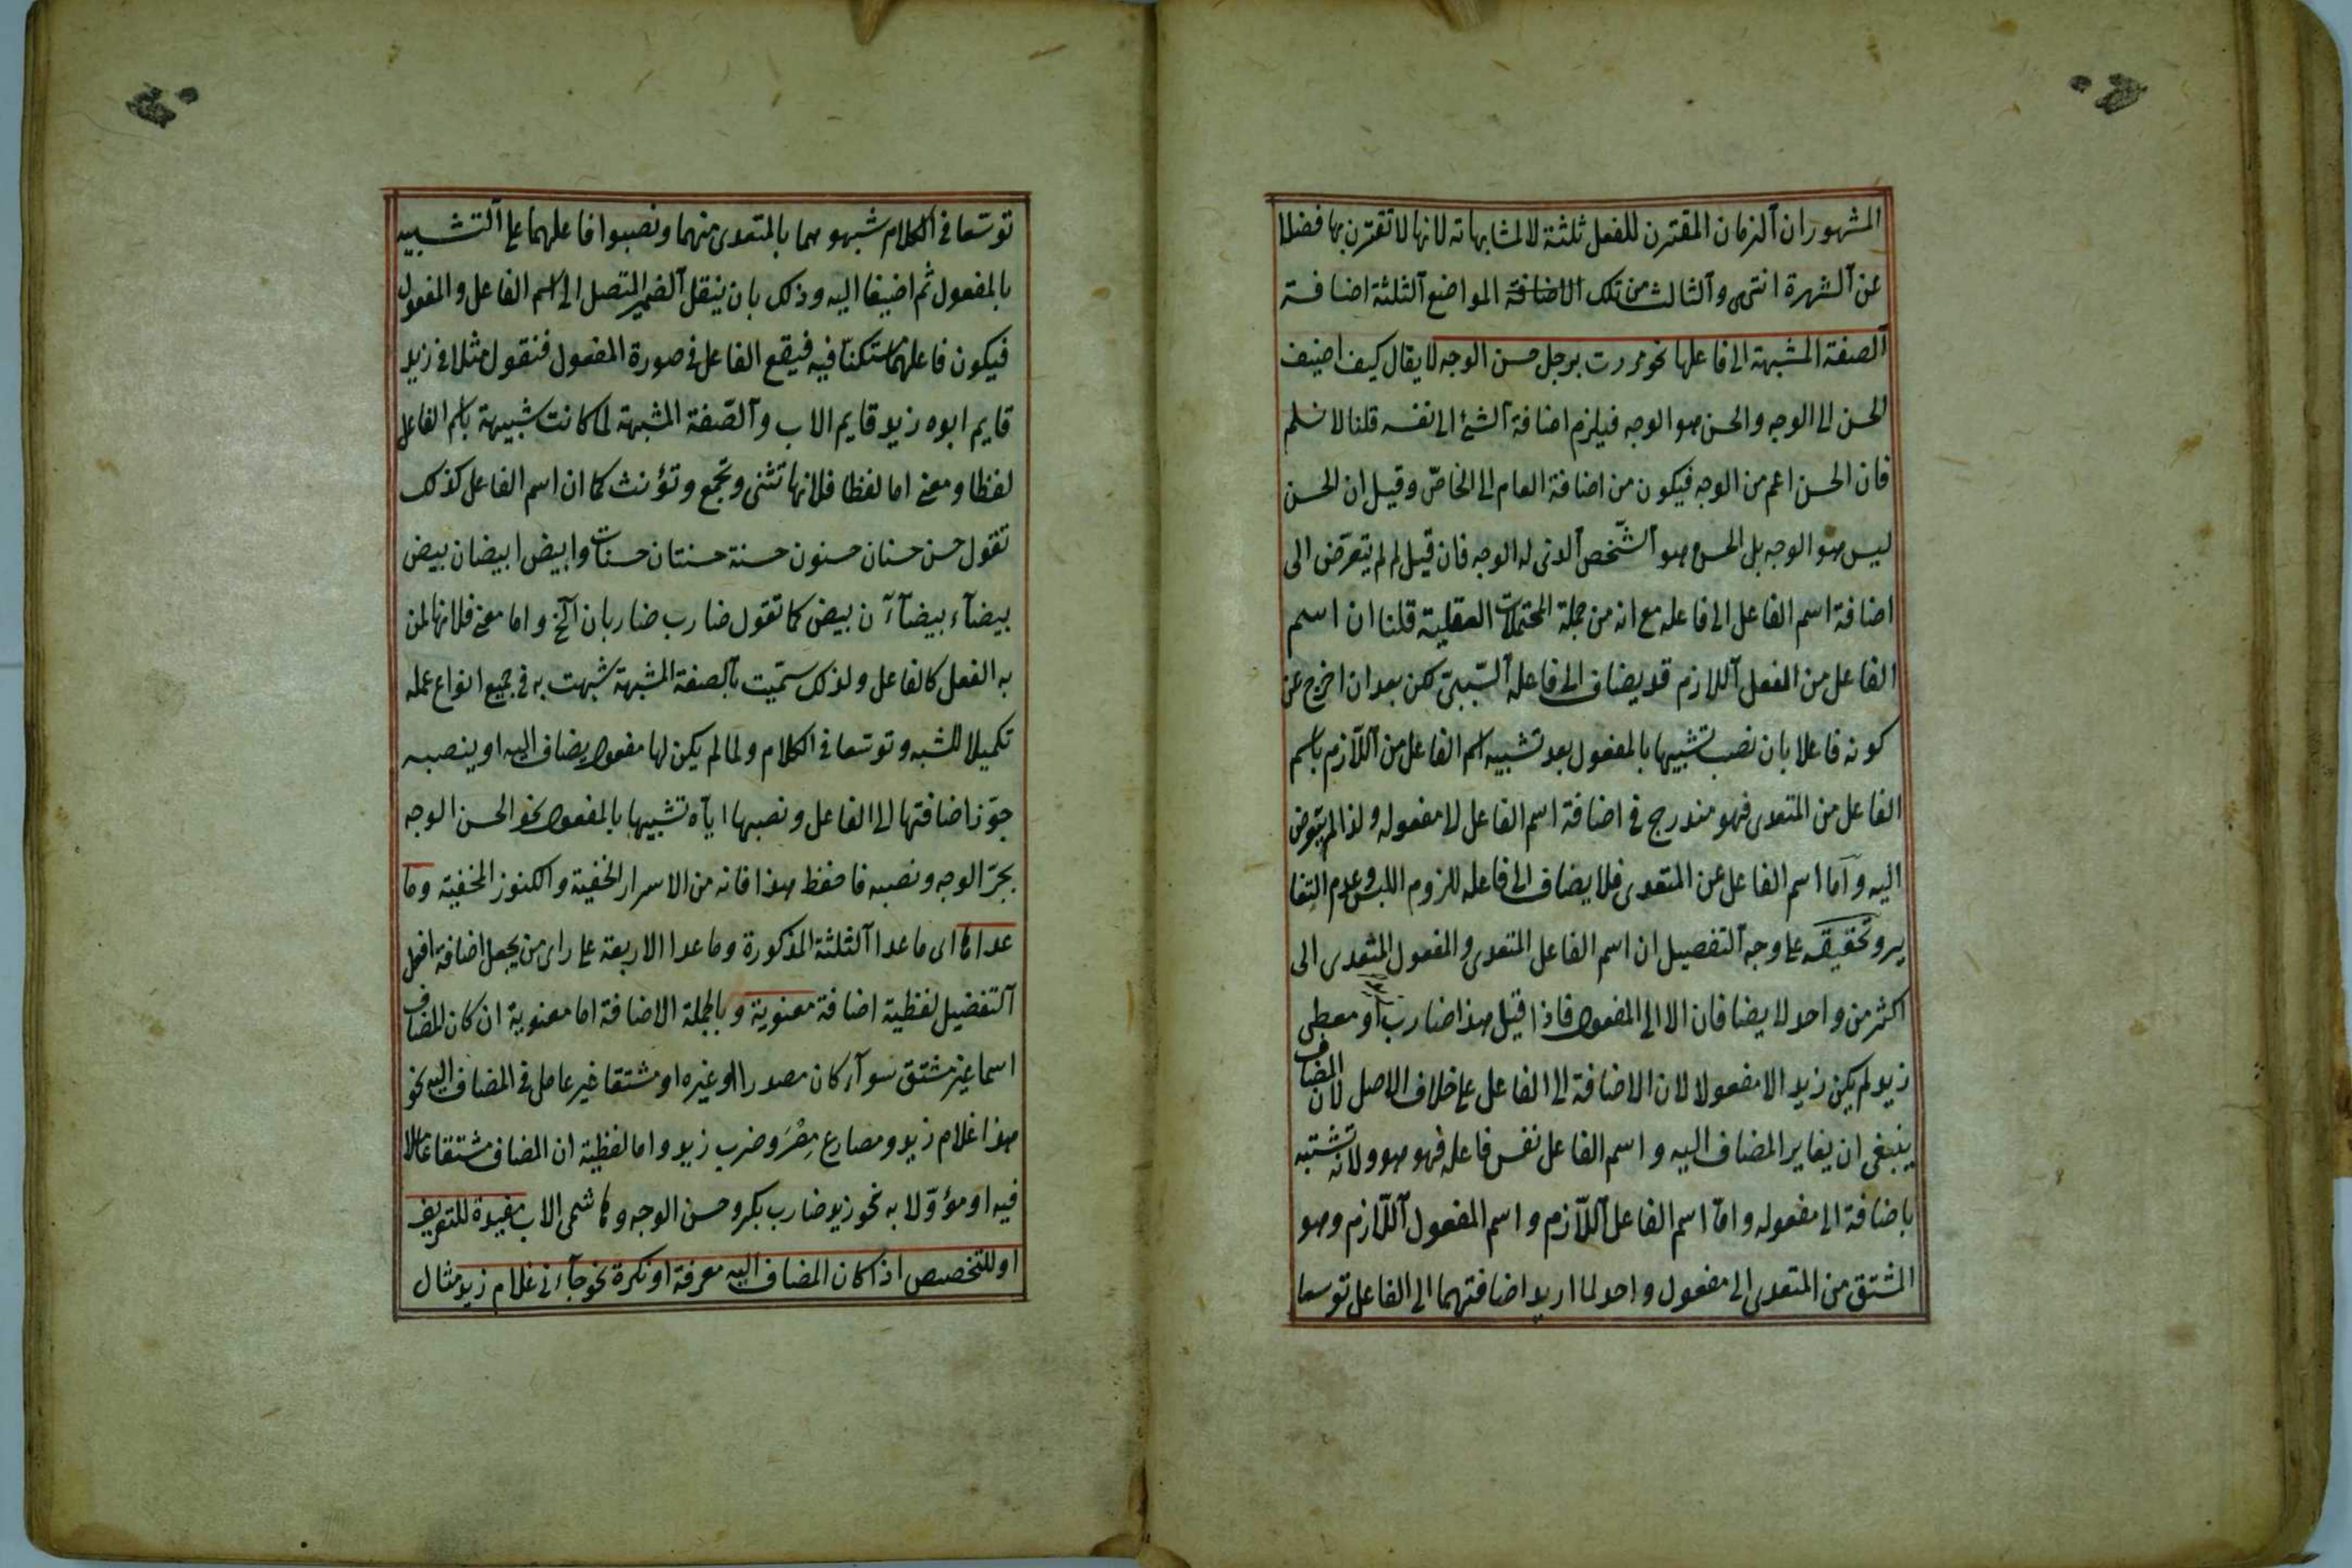 المشهور ان الزمان المقترن للفعل ثلثة لا لمشابهاته لانها لا تقترن بها فضلا
عن الشهرة انتهى والثالث من تلك الاضافة المواضع الثلثة اضافة
الصفة المشبهة الى فاعلها نحو مررت برجل حسن الوجه لا يقال كيف اضيف
الحسن الى الوجه والحسن هو الوجه فيلزم اضافة الشئ الى نفسه قلنا لا نسلم
فان الحسن اعم من الوجه فيكون من اضافة العام الى الخاصّ وقيل ان الحسن
ليس هو الوجه بل الحسن هو الشّخص الذى له الوجه فان قيل لم لم يتعرّض الى
اضافة اسم الفاعل الى فاعله مع انه من جملة المحتملات العقلية قلنا ان اسم
الفاعل من الفعل اللازم قد يضاف الى فاعله السّببىّ لكن بعد ان اخرج عن
كونه فاعلا بان نصب تشبيها بالمفعول بعد تشبيه اسم الفاعل من اللّازم باسم
الفاعل من المتعدى فهو مندرج فى اضافة اسم الفاعل لا مفعوله ولذا لم يتعرض
اليه وامّا اسم الفاعل عن المتعدى فلا يضاف الى فاعله للزوم اللبس وعدم التغا
ير وتحقيقه على وجه التفصيل ان اسم الفاعل المتعدى والمفعول المتعدى الى
اكثر من واحد لا يضافان الا الى المفعول فاذا قيل هذا ضارب او معطى
زيد لم يكن زيد الا مفعولا لان الاضافة الى الفاعل على خلاف الاصل لان المضاف
ينبغى ان يغاير المضاف اليه واسم الفاعل نفس فاعله فهو هو ولانه تشتبه
باضافة الى مفعوله وامّا اسم الفاعل اللّازم واسم المفعول اللّازم وهو
المشتق من المتعدى الى مفعول واحد لما اريد اضافتهما الى الفاعل توسعا
توسّعا فى الكلام شبهوهما بالمتعدى منهما ونصبوا فاعلهما على التشبيه
بالمفعول ثم اضيفا اليه وذلك بان ينقل الضمير المتصل الى اسم الفاعل والمفعول
فيكون فاعلهما مستكنّا فيه فيقع الفاعل فى صورة المفعول فنقول مثلا فى زيد
قايم ابوه زيد قايم الاب والصّفة المشبهة لما كانت شبيهة باسم الفاعل
لفظا ومعنى اما لفظا فلانها تثنى وتجمع وتؤنث كما ان اسم الفاعل كذلك
تقول حسن حسنان حسنون حسنة حسنتان حسنات وابيض ابيضان بيض
بيضآء بيضآءآن بيض كما تقول ضارب ضاربان الخ واما معنى فلانها لمن
به الفعل كالفاعل ولذلك سمّيت بالصفة المشبهة شبهت به فى جميع انواع عمله
تكميلا للشبه وتوسّعا فى الكلام ولما لم يكن لها مفعول يضاف اليه او ينصبه
جوّز اضافتها الى الفاعل ونصبها ايّاه تشبيها بالمفعول نحو الحسن الوجه
بجرّ الوجه ونصبه فاحفظ هذا فانه من الاسرار الخفية والكنوز المخفية وما
عداها اى ما عدا الثلثة المذكورة وما عدا الاربعة على راى من يجعل اضافة افعل
التفضيل لفظية اضافة معنوية وبالجملة الاضافة اما معنوية ان كان المضاف
اسما غير مشتق سوآء كان مصدرا او غيره او مشتقا غير عامل فى المضاف اليه نحو
هذا غلام زيد ومصارع مِصْرَ وضرب زيد واما لفظية ان المضاف مشتقا عاملا
فيه او مؤوّلا به نحو زيد ضارب بكر وحسن الوجه وهاشمى الاب مفيدة للتعريف
او للتخصيص اذا كان المضاف اليه معرفة او نكرة نحو جآءنى غلام زيد مثال